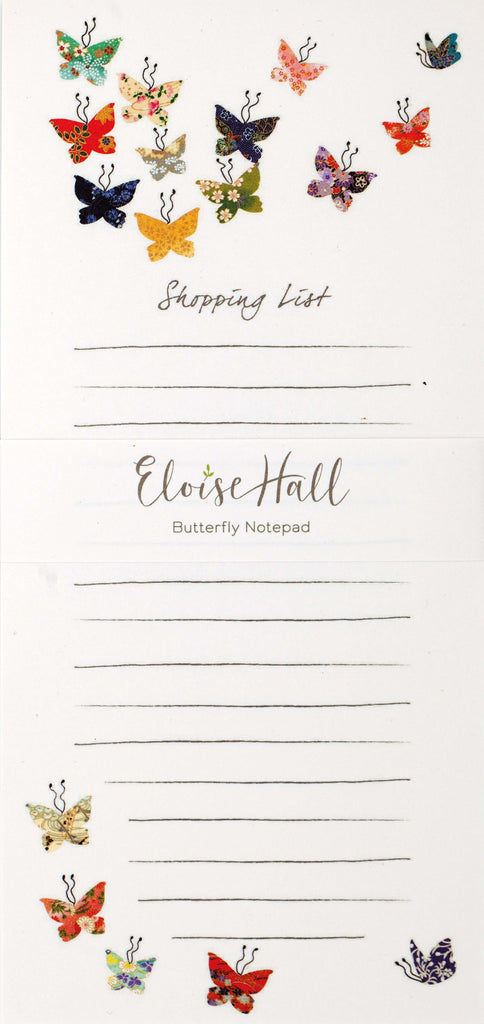 Shopping List
Eloise Hall
Butterfly Notepad